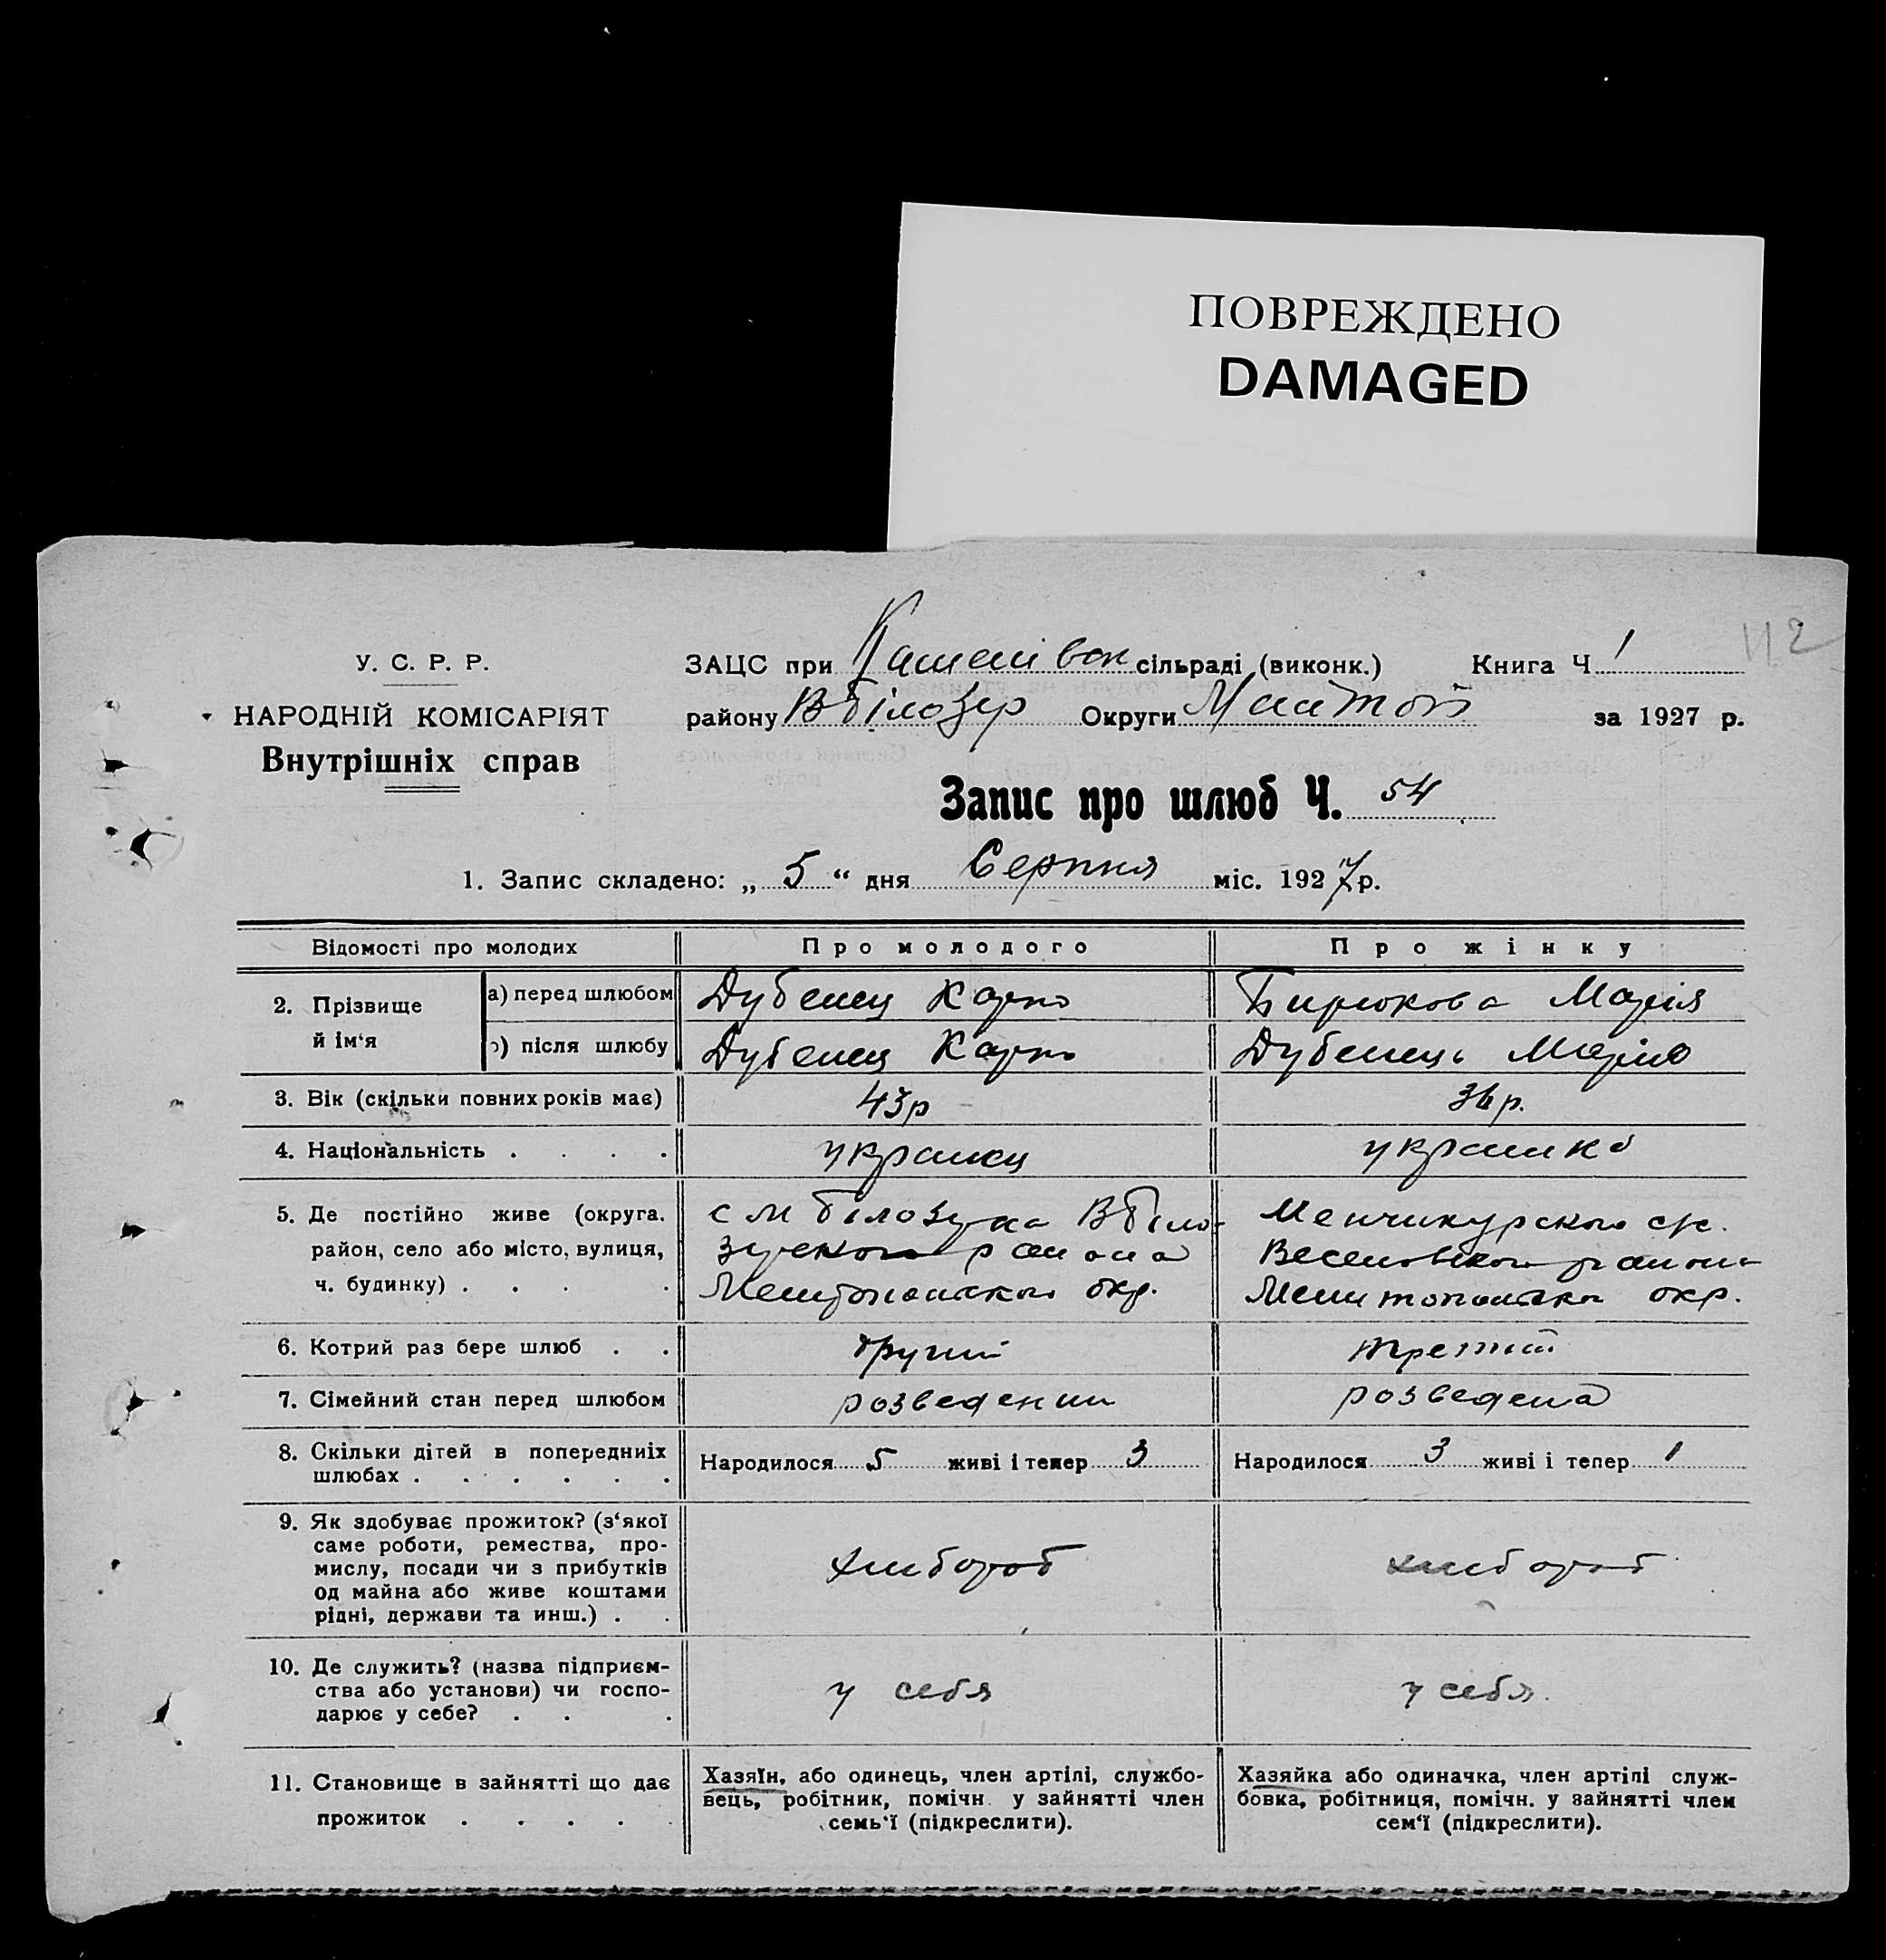 ПОВРЕЖДЕНО
DAMAGED
У. С. Р. Р.
НАРОДНІЙ КОМІСАРІЯТ
Внутрішніх справ
ЗАЦС при сільраді (виконк.) Книга Ч 1
району Вбілозер Округи за 1927 р.
Запис про шлюб Ч. 54
1. Запис складено: „ 5 “ дня Серпня міс. 1927 р.
Відомості про молодих Про молодого Про жінку
2. Прізвище й ім‘я
а) перед шлюбом Дубенец Карпо Бирюкова Марія
б) після шлюбу Дубенец Карпо Дубенець Марія
3. Вік (скільки повних років має) 43р 36 р.
4. Національність . . . . украинец украинка
5. Де постійно живе (округа, район, село або місто, вулиця, ч. будинку) . . . .
с М білозурка Вбіло-
зурского раиона
Мелитопольского окр.
Менчикурского с/с.
Веселовского раиона
Мелитопольского окр.
6. Котрий раз бере шлюб . . другий третій
7. Сімейний стан перед шлюбом розведении розведена
8. Скільки дітей в попередниіх шлюбах . . . . . .
Народилося 5 живі і тепер 3
Народилося 3 живі і тепер 1
9. Як здобуває прожиток? (з‘якої
саме роботи, ремества, про-
мислу, посади чи з прибутків
од майна або живе коштами
рідні, держави та инш.) . .
хлібороб хлібороб
10. Де служить? (назва підприєм-
ства або установи) чи госпо-
дарює у себе? . . .
у себя у себя.
11. Становище в зайнятті що дає
прожиток . . . . .
Хазяїн, або одинець, член артілі, службо-
вець, робітник, помічн. у зайнятті член
семь‘ї (підкреслити).
Хазяйка або одиначка, член артілі служ-
бовка, робітниця, помічн. у зайнятті член
сем‘ї (підкреслити).